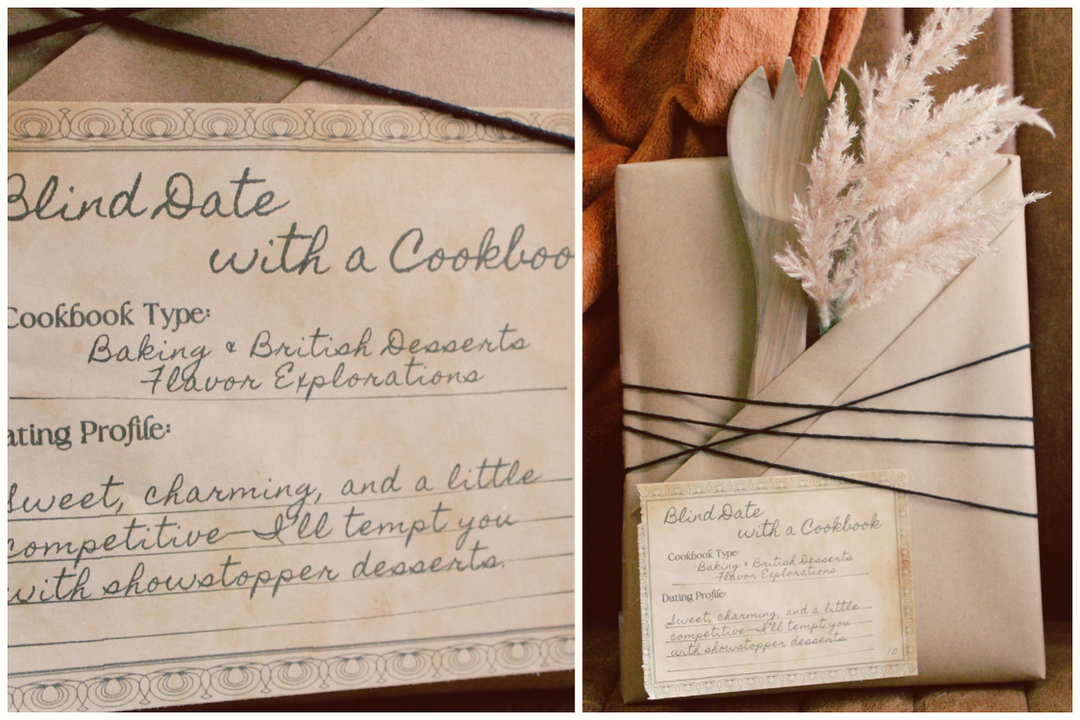 Blind Date
with a Cookboo
Cookbook Type:
Baking & British Desserts
Flavor Explorations
ating Profile:
Sweet, charming, and a little
competitive—I'll tempt you
with showstopper desserts.
Blind Date
with a Cookbook
Cookbook Type:
Baking & British Desserts
Flavor Explorations
Dating Profile:
Sweet, charming, and a little
competitive—I'll tempt you
with showstopper desserts.
10